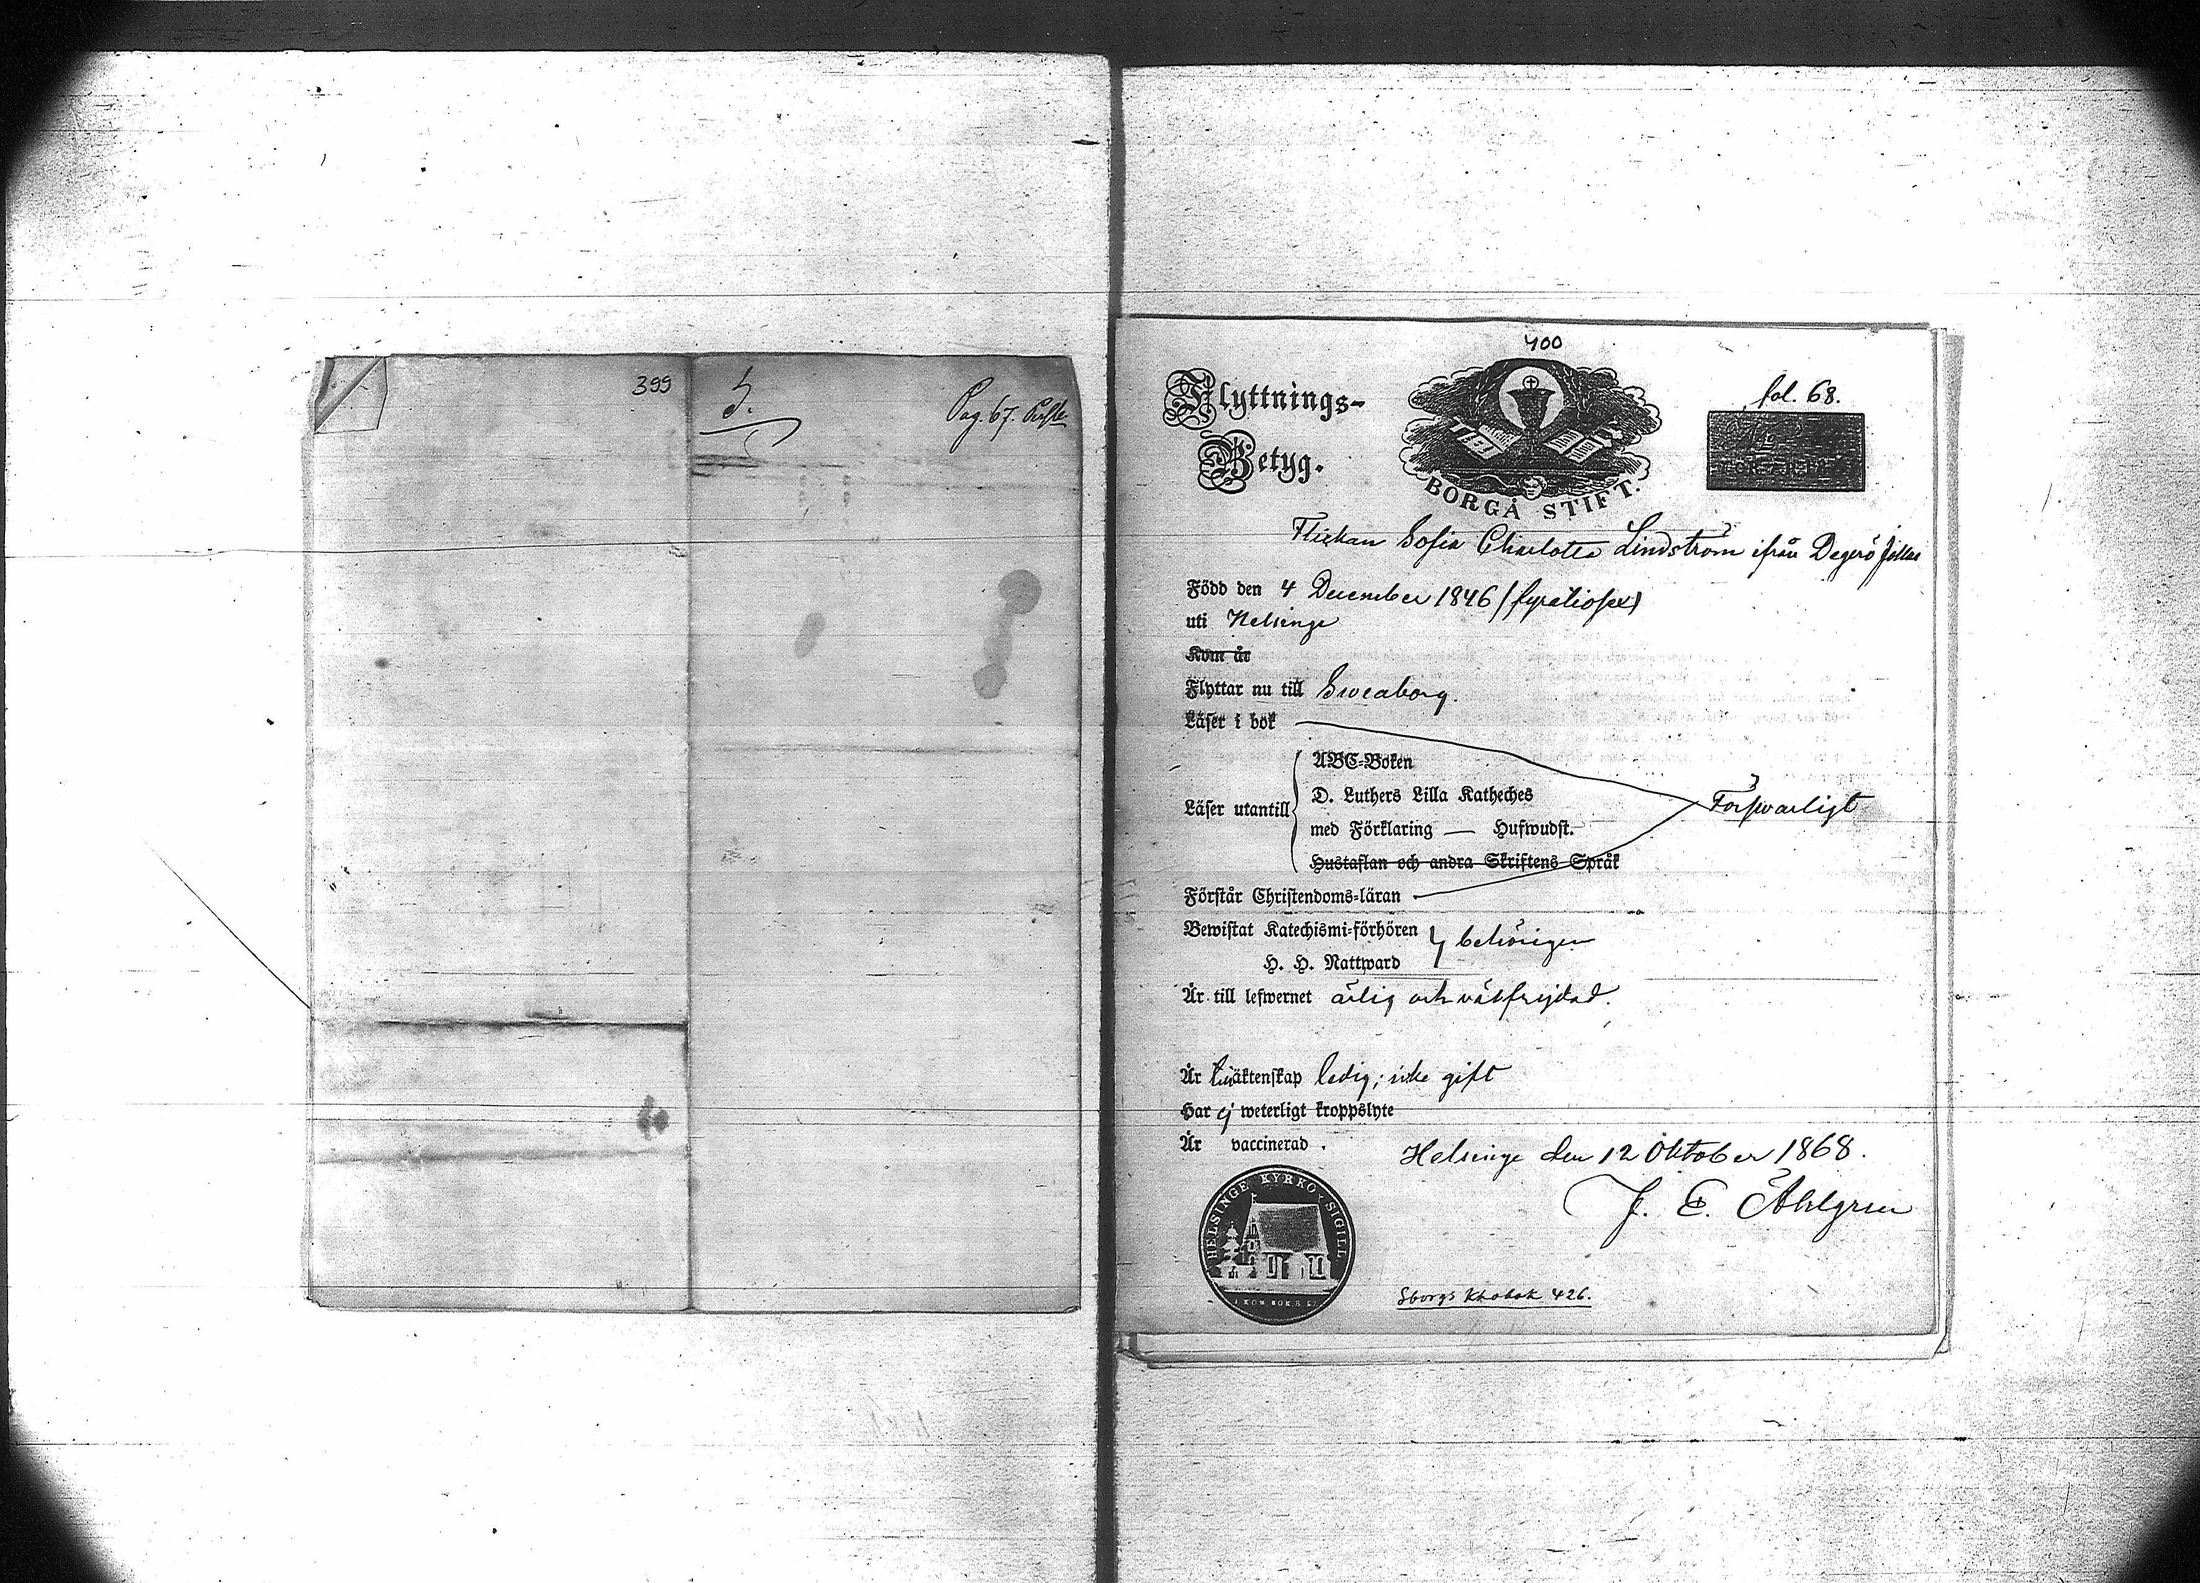 399
5.
Pag. 67.
400
Flyttnings-
Betyg.
BORGÅ STIFT.
fol. 68.
Flickan Sofia Charlotta Lindström ifrån Degerö Jollas
Född den 4 December 1846 (fyratiosex)
uti Helsinge
Kom år
Flyttar nu till Sweaborg.
Läser i bok
Läser utantill
ABC-Boken
D. Luthers Lilla Katheches
med Förklaring — Hufwudst.
Hustaflan och andra Skriftens Språk
Förswarligt
Förstår Christendoms-läran
Bewistat Katechismi-förhören
H. H. Nattward
behörigen
Är till lefwernet ärlig och välfrejdad.
Är till äktenskap ledig; icke gift
Har ej weterligt kroppslyte
Är vaccinerad.
Helsinge den 12 Oktober 1868.
J. E. Åhlgren
HELSINGE KYRKO SIGILL
Sborgs Kbobok 426.